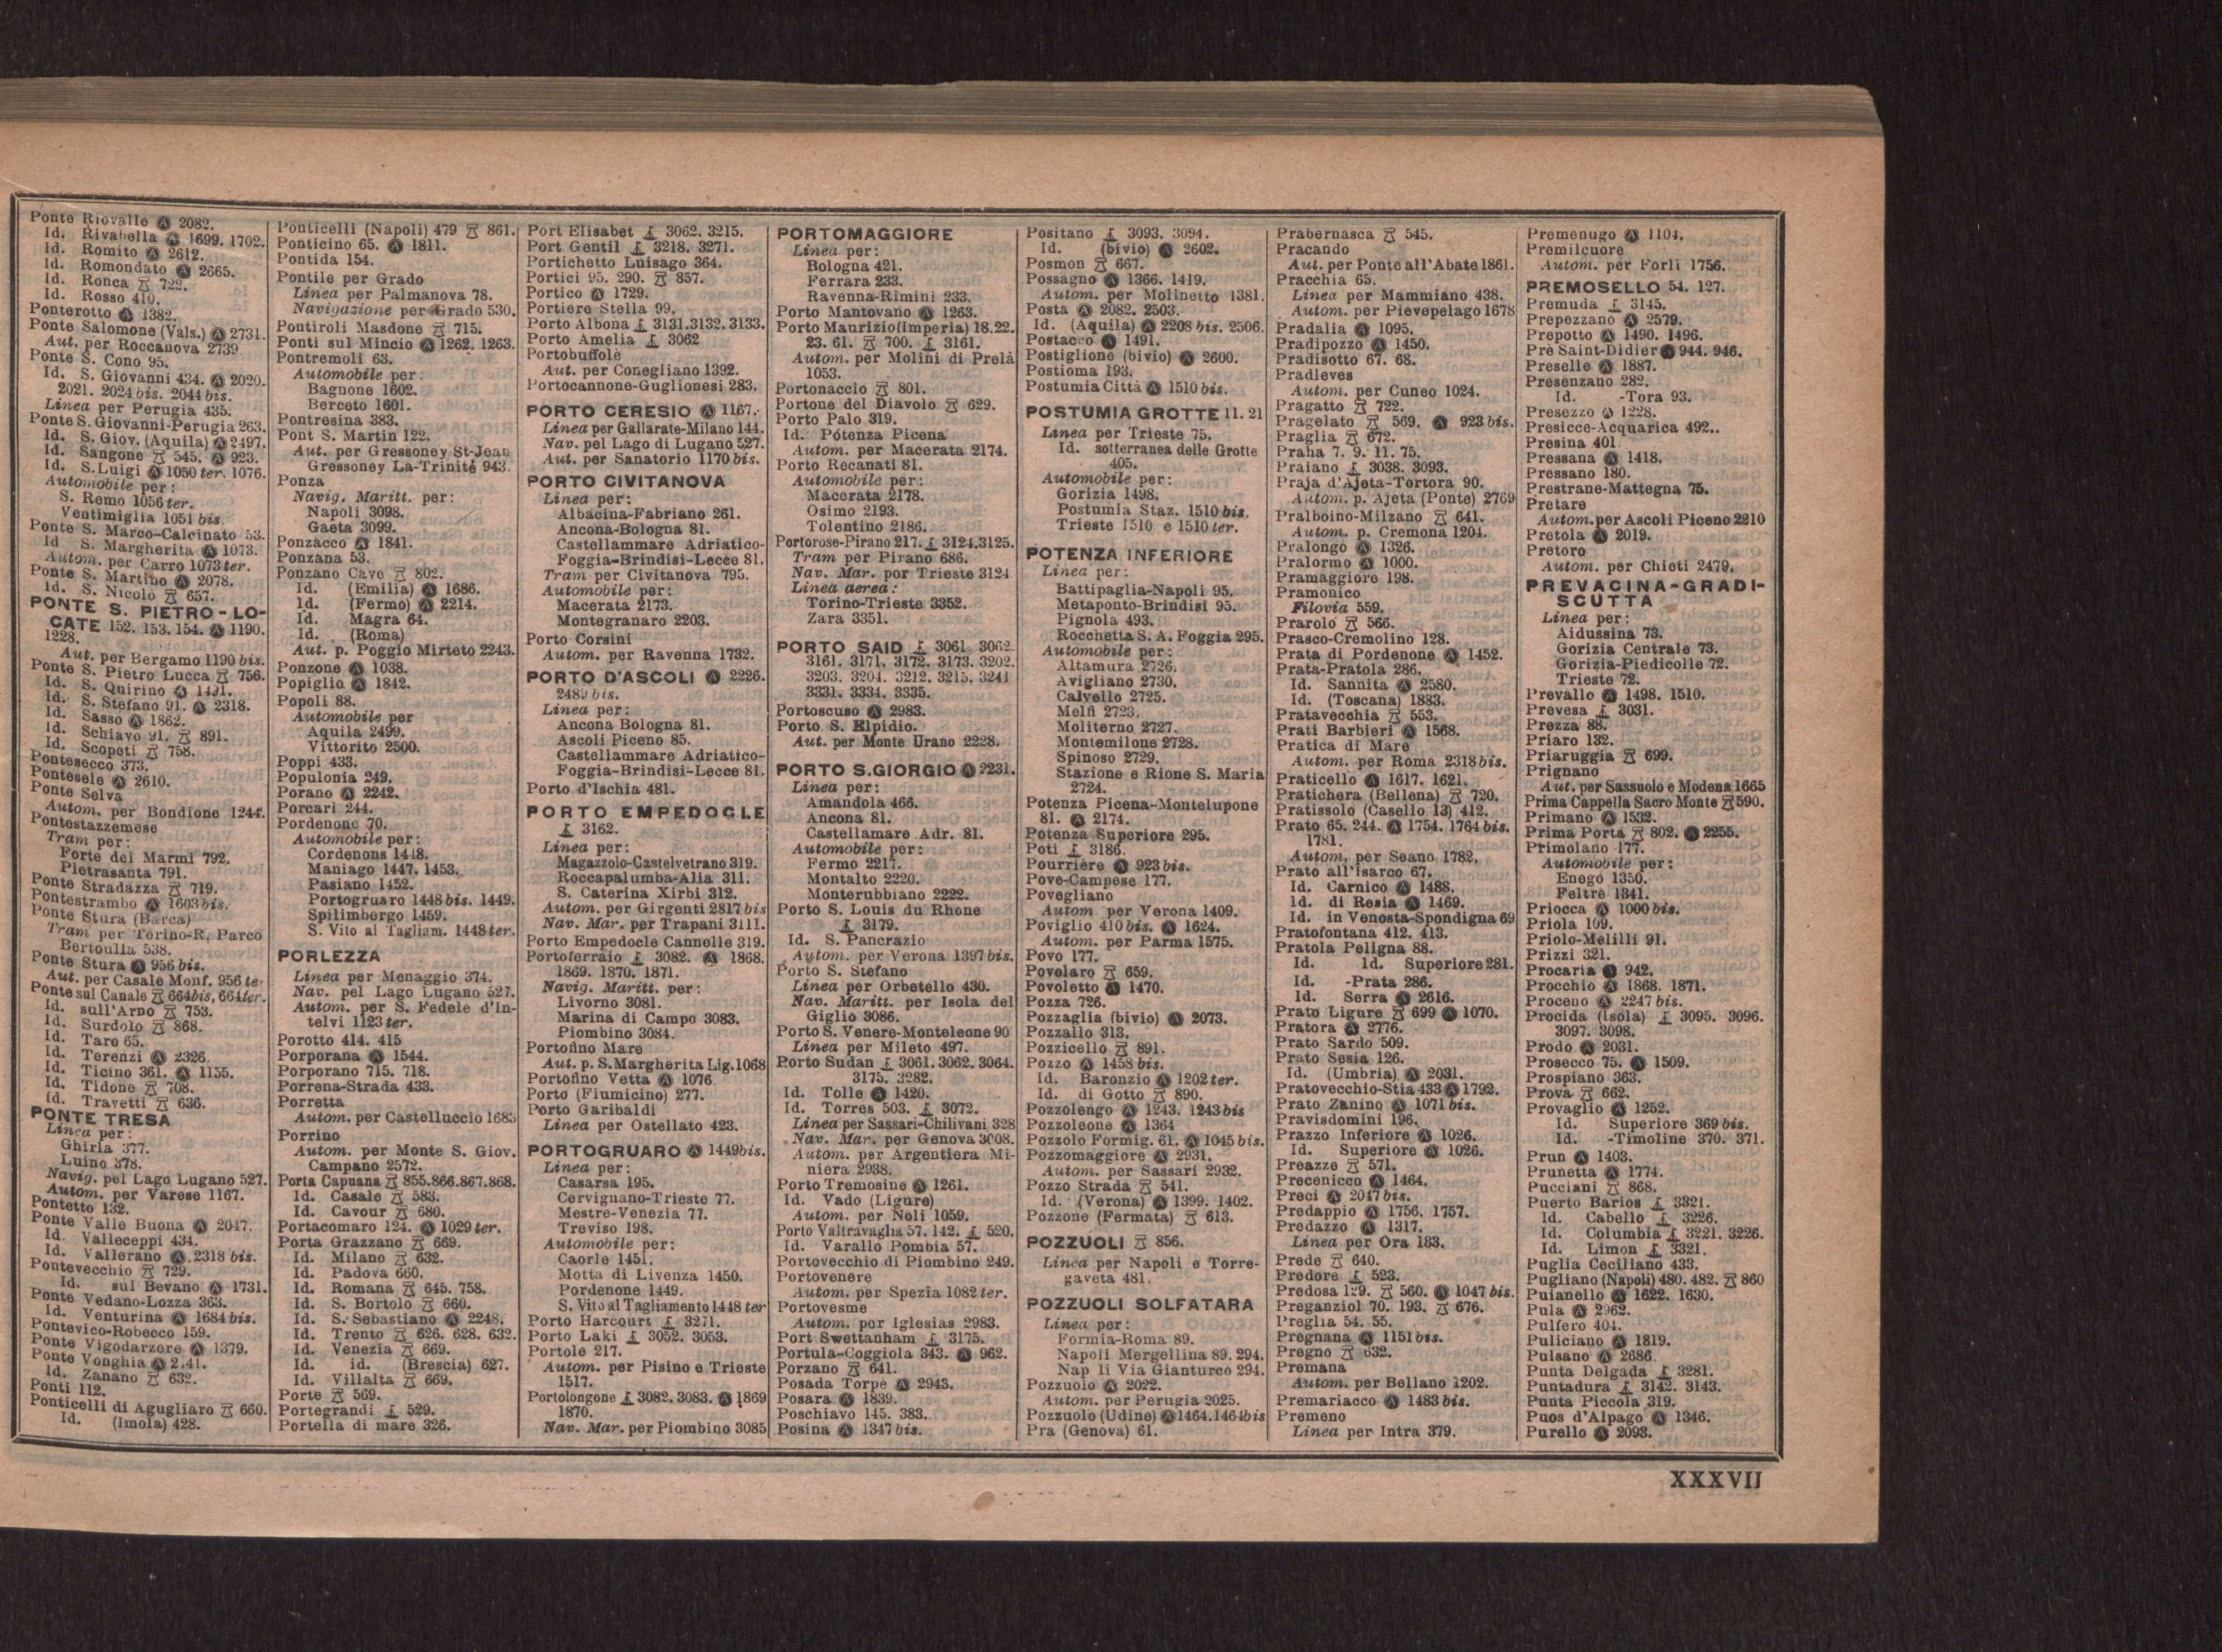 Ponte Riovalle Ⓐ 2082.
Id. Rivabella Ⓐ 1699. 1702.
Id. Romito Ⓐ 2612.
Id. Romondato Ⓐ 2665.
Id. Ronca 722.
Id. Rosso 410.
Ponterotto Ⓐ 1382.
Ponte Salomone (Vals.) Ⓐ 2731.
Aut. per Roccanova 2739
Ponte S. Cono 95.
Id. S. Giovanni 434. Ⓐ 2020.
2021. 2024 bis. 2044 bis.
Linea per Perugia 435.
Ponte S. Giovanni-Perugia 263.
Id. S. Giov. (Aquila) Ⓐ 2497.
Id. Sangone 545. Ⓐ 923.
Id. S. Luigi Ⓐ 1050 ter. 1076.
Automobile per:
S. Remo 1056 ter.
Ventimiglia 1051 bis.
Ponte S. Marco-Calcinato 53.
Id S. Margherita Ⓐ 1073.
Autom. per Carro 1073 ter.
Ponte S. Martino Ⓐ 2078.
Id. S. Nicolò 657.
PONTE S. PIETRO-LO-
CATE 152. 153. 154. Ⓐ 1190.
1228.
Aut. per Bergamo 1190 bis.
Ponte S. Pietro Lucca 756.
Id. S. Quirino Ⓐ 1491.
Id. S. Stefano 91. Ⓐ 2318.
Id. Sasso Ⓐ 1862.
Id. Schiavo 91. 891.
Id. Scopeti 758.
Pontesecco 373.
Pontesele Ⓐ 2610.
Ponte Selva
Autom. per Bondione 1244.
Pontestazzemese
Tram per:
Forte dei Marmi 792.
Pietrasanta 791.
Ponte Stradazza 719.
Pontestrambo Ⓐ 1603 bis.
Ponte Stura (Barca)
Tram per Torino-R. Parco
Bertoulla 538.
Ponte Stura Ⓐ 956 bis.
Aut. per Casale Monf. 956 te
Ponte sul Canale 664bis, 664ter.
Id. sull'Arno 753.
Id. Surdolo 868.
Id. Taro 65.
Id. Terenzi Ⓐ 2326.
Id. Ticino 361. Ⓐ 1155.
Id. Tidone 708.
Id. Travetti 636.
PONTE TRESA
Linea per:
Ghirla 377.
Luino 378.
Navig. pel Lago Lugano 527.
Autom. per Varese 1167.
Pontetto 132.
Ponte Valle Buona Ⓐ 2047.
Id. Valleceppi 434.
Id. Vallerano Ⓐ 2318 bis.
Pontevecchio 729.
Id. sul Bevano Ⓐ 1731.
Ponte Vedano-Lozza 363.
Id. Venturina Ⓐ 1684 bis.
Pontevico-Robecco 159.
Ponte Vigodarzere Ⓐ 1379.
Ponte Vonghia Ⓐ 2141.
Id. Zanano 632.
Ponti 112.
Ponticelli di Agugliaro 660.
Id. (Imola) 428.
Ponticelli (Napoli) 479 861.
Ponticino 65. Ⓐ 1811.
Pontida 154.
Pontile per Grado
Linea per Palmanova 78.
Navigazione per Grado 530.
Pontiroli Masdone 715.
Ponti sul Mincio Ⓐ 1262. 1263.
Pontremoli 63.
Automobile per:
Bagnone 1602.
Berceto 1601.
Pontresina 383.
Pont S. Martin 122.
Aut. per Gressoney St-Jean
Gressoney La-Trinité 943.
Ponza
Navig. Maritt. per:
Napoli 3098.
Gaeta 3099.
Ponzacco Ⓐ 1841.
Ponzana 53.
Ponzano Cave 802.
Id. (Emilia) Ⓐ 1686.
Id. (Fermo) Ⓐ 2214.
Id. Magra 64.
Id. (Roma)
Aut. p. Poggio Mirteto 2243.
Ponzone Ⓐ 1038.
Popiglio Ⓐ 1842.
Popoli 88.
Automobile per
Aquila 2499.
Vittorito 2500.
Poppi 433.
Populonia 249.
Porano Ⓐ 2242.
Porcari 244.
Pordenone 70.
Automobile per:
Cordenons 1448.
Maniago 1447. 1453.
Pasiano 1452.
Portogruaro 1448 bis. 1449.
Spilimbergo 1459.
S. Vito al Tagliam. 1448 ter.
PORLEZZA
Linea per Menaggio 374.
Nav. pel Lago Lugano 527.
Autom. per S. Fedele d'In-
telvi 1123 ter.
Porotto 414. 415
Porporana Ⓐ 1544.
Porporano 715. 718.
Porrena-Strada 433.
Porretta
Autom. per Castelluccio 1685
Porrino
Autom. per Monte S. Giov.
Campano 2572.
Porta Capuana 855.866.867.868.
Id. Casale 583.
Id. Cavour 680.
Portacomaro 124. Ⓐ 1029 ter.
Porta Grazzano 669.
Id. Milano 632.
Id. Padova 660.
Id. Romana 645. 758.
Id. S. Bortolo 660.
Id. S. Sebastiano Ⓐ 2248.
Id. Trento 626. 628. 632.
Id. Venezia 669.
Id. id. (Brescia) 627.
Id. Villalta 669.
Porte 569.
Portegrandi 529.
Portella di mare 326.
Port Elisabet 3062. 3215.
Port Gentil 3218. 3271.
Portichetto Luisago 364.
Portici 95. 290. 857.
Portico Ⓐ 1729.
Portiere Stella 99.
Porto Albona 3131.3132. 3133.
Porto Amelia 3062
Portobuffolè
Aut. per Conegliano 1392.
Portocannone-Guglionesi 283.
PORTO CERESIO Ⓐ 1167.
Linea per Gallarate-Milano 144.
Nav. pel Lago di Lugano 527.
Aut. per Sanatorio 1170 bis.
PORTO CIVITANOVA
Linea per:
Albacina-Fabriano 261.
Ancona-Bologna 81.
Castellammare Adriatico-
Foggia-Brindisi-Lecce 81.
Tram per Civitanova 795.
Automobile per:
Macerata 2173.
Montegranaro 2203.
Porto Corsini
Autom. per Ravenna 1732.
PORTO D'ASCOLI Ⓐ 2226.
2489 bis.
Linea per:
Ancona Bologna 81.
Ascoli Piceno 85.
Castellammare Adriatico-
Foggia-Brindisi-Lecce 81.
Porto d'Ischia 481.
PORTO EMPEDOCLE
3162.
Linea per:
Magazzolo-Castelvetrano 319.
Roccapalumba-Alia 311.
S. Caterina Xirbi 312.
Autom. per Girgenti 2817 bis
Nav. Mar. per Trapani 3111.
Porto Empedocle Cannelle 319.
Portoferraio 3082. Ⓐ 1868.
1869. 1870. 1871.
Navig. Maritt. per:
Livorno 3081.
Marina di Campo 3083.
Piombino 3084.
Portofino Mare
Aut. p. S. Margherita Lig. 1068
Portofino Vetta Ⓐ 1076
Porto (Fiumicino) 277.
Porto Garibaldi
Linea per Ostellato 423.
PORTOGRUARO Ⓐ 1449bis.
Linea per:
Casarsa 195.
Cervignano-Trieste 77.
Mestre-Venezia 77.
Treviso 198.
Automobile per:
Caorle 1451.
Motta di Livenza 1450.
Pordenone 1449.
S. Vito al Tagliamento 1448 ter
Porto Harcourt 3271.
Porto Laki 3052. 3053.
Portole 217.
Autom. per Pisino e Trieste
1517.
Portolongone 3082. 3083. Ⓐ 1869
1870.
Nav. Mar. per Piombino 3085
PORTOMAGGIORE
Linea per:
Bologna 421.
Ferrara 233.
Ravenna-Rimini 233.
Porto Mantovano Ⓐ 1263.
Porto Maurizio (Imperia) 18.22.
23. 61. 700. 3161.
Autom. per Molini di Prelà
1053.
Portonaccio 801.
Portone del Diavolo 629.
Porto Palo 319.
Id. Pótenza Picena
Autom. per Macerata 2174.
Porto Recanati 81.
Automobile per:
Macerata 2178.
Osimo 2193.
Tolentino 2186.
Portorose-Pirano 217. 3124.3125.
Tram per Pirano 686.
Nav. Mar. por Trieste 3124
Linea aerea:
Torino-Trieste 3352.
Zara 3351.
PORTO SAID 3061. 3062.
3161. 3171. 3172. 3173. 3202.
3203. 3204. 3212. 3215. 3241
3331. 3334. 3335.
Portoscuso Ⓐ 2983.
Porto S. Elpidio.
Aut. per Monte Urano 2228.
PORTO S. GIORGIO Ⓐ 2231.
Linea per:
Amandola 466.
Ancona 81.
Castellamare Adr. 81.
Automobile per:
Fermo 2217.
Montalto 2220.
Monterubbiano 2222.
Porto S. Louis du Rhone
3179.
Id. S. Pancrazio
Autom. per Verona 1397 bis.
Porto S. Stefano
Linea per Orbetello 430.
Nav. Maritt. per Isola del
Giglio 3086.
Porto S. Venere-Monteleone 90
Linea per Mileto 497.
Porto Sudan 3061. 3062. 3064.
3175. 3282.
Id. Tolle Ⓐ 1420.
Id. Torres 503. 3072.
Linea per Sassari-Chilivani 328
Nav. Mar. per Genova 3008.
Autom. per Argentiera Mi-
niera 2938.
Porto Tremosine Ⓐ 1261.
Id. Vado (Ligure)
Autom. per Noli 1059.
Porto Valtravaglia 57. 142. 520.
Id. Varallo Pombia 57.
Portovecchio di Piombino 249.
Portovenere
Autom. per Spezia 1082 ter.
Portovesme
Autom. per Iglesias 2983.
Port Swettanham 3175.
Portula-Coggiola 343. Ⓐ 962.
Porzano 641.
Posada Torpè Ⓐ 2943.
Posara Ⓐ 1839.
Poschiavo 145. 383.
Posina Ⓐ 1347 bis.
Positano 3093. 3094.
Id. (bivio) Ⓐ 2602.
Posmon 667.
Possagno Ⓐ 1366. 1419.
Autom. per Molinetto 1381.
Posta Ⓐ 2082. 2503.
Id. (Aquila) Ⓐ 2208 bis. 2506.
Postacco Ⓐ 1491.
Postiglione (bivio) Ⓐ 2600.
Postioma 193.
Postumia Città Ⓐ 1510 bis.
POSTUMIA GROTTE 11. 21
Linea per Trieste 75.
Id. sotterranea delle Grotte
405.
Automobile per:
Gorizia 1498.
Postumia Staz. 1510 bis.
Trieste 1510 e 1510 ter.
POTENZA INFERIORE
Linea per:
Battipaglia-Napoli 95.
Metaponto-Brindisi 95.
Pignola 493.
Rocchetta S. A. Foggia 295.
Automobile per:
Altamura 2726.
Avigliano 2730.
Calvello 2725.
Melfi 2723.
Moliterno 2727.
Montemilone 2728.
Spinoso 2729.
Stazione e Rione S. Maria
2724.
Potenza Picena-Montelupone
81. Ⓐ 2174.
Potenza Superiore 295.
Poti 3186.
Pourrière Ⓐ 923 bis.
Pove-Campese 177.
Povegliano
Autom per Verona 1409.
Poviglio 410 bis. Ⓐ 1624.
Autom. per Parma 1575.
Povo 177.
Povolaro 659.
Povoletto Ⓐ 1470.
Pozza 726.
Pozzaglia (bivio) Ⓐ 2073.
Pozzallo 313.
Pozzicello 891.
Pozzo Ⓐ 1458 bis.
Id. Baronzio Ⓐ 1202 ter.
Id. di Gotto 890.
Pozzolengo Ⓐ 1243. 1243 bis
Pozzoleone Ⓐ 1364
Pozzolo Formig. 61. Ⓐ 1045 bis.
Pozzomaggiore Ⓐ 2931.
Autom. per Sassari 2932.
Pozzo Strada 541.
Id. (Verona) Ⓐ 1399. 1402.
Pozzone (Fermata) 613.
POZZUOLI 856.
Linea per Napoli e Torre-
gaveta 481.
POZZUOLI SOLFATARA
Linea per:
Formia-Roma 89.
Napoli Mergellina 89. 294.
Nap li Via Gianturco 294.
Pozzuolo Ⓐ 2022.
Autom. per Perugia 2025.
Pozzuolo (Udine) Ⓐ 1464.1464bis
Pra (Genova) 61.
Prabernasca 545.
Pracando
Aut. per Ponte all'Abate 1861.
Pracchia 65.
Linea per Mammiano 438.
Autom. per Pievepelago 1678
Pradalia Ⓐ 1095.
Pradipozzo Ⓐ 1450.
Pradisotto 67. 68.
Pradleves
Autom. per Cuneo 1024.
Pragatto 722.
Pragelato 569. Ⓐ 923 bis.
Praglia 672.
Praha 7. 9. 11. 75.
Praiano 3038. 3093.
Praja d'Ajeta-Tortora 90.
Autom. p. Ajeta (Ponte) 2769
Pralboino-Milzano 641.
Autom. p. Cremona 1204.
Pralongo Ⓐ 1326.
Pralormo Ⓐ 1000.
Pramaggiore 198.
Pramonico
Filovia 559.
Prarolo 566.
Prasco-Cremolino 128.
Prata di Pordenone Ⓐ 1452.
Prata-Pratola 286.
Id. Sannita Ⓐ 2580.
Id. (Toscana) 1883.
Pratavecchia 553.
Prati Barbieri Ⓐ 1568.
Pratica di Mare
Autom. per Roma 2318 bis.
Praticello Ⓐ 1617. 1621.
Pratichera (Bellena) 720.
Pratissolo (Casello 13) 412.
Prato 65. 244. Ⓐ 1754. 1764 bis.
1781.
Autom. per Seano 1782.
Prato all'Isarco 67.
Id. Carnico Ⓐ 1488.
Id. di Resia Ⓐ 1469.
Id. in Venosta-Spondigna 69
Pratofontana 412. 413.
Pratola Peligna 88.
Id. Id. Superiore 281.
Id. -Prata 286.
Id. Serra Ⓐ 2616.
Prato Ligure 699 Ⓐ 1070.
Pratora Ⓐ 2776.
Prato Sardo 509.
Prato Sesia 126.
Id. (Umbria) Ⓐ 2031.
Pratovecchio-Stia 433 Ⓐ 1792.
Prato Zanino Ⓐ 1071 bis.
Pravisdomini 196.
Prazzo Inferiore Ⓐ 1026.
Id. Superiore Ⓐ 1026.
Preazze 571.
Precenicco Ⓐ 1464.
Preci Ⓐ 2047 bis.
Predappio Ⓐ 1756. 1757.
Predazzo Ⓐ 1317.
Linea per Ora 183.
Prede 640.
Predore 523.
Predosa 129. 560. Ⓐ 1047 bis.
Preganziol 70. 193. 676.
Preglia 54. 55.
Pregnana Ⓐ 1151 bis.
Pregno 632.
Premana
Autom. per Bellano 1202.
Premariacco Ⓐ 1483 bis.
Premeno
Linea per Intra 379.
Premenugo Ⓐ 1104.
Premilcuore
Autom. per Forlì 1756.
PREMOSELLO 54. 127.
Premuda 3145.
Prepezzano Ⓐ 2579.
Prepotto Ⓐ 1490. 1496.
Prè Saint-Didier Ⓐ 944. 946.
Preselle Ⓐ 1887.
Presenzano 282.
Id. -Tora 93.
Presezzo Ⓐ 1228.
Presicce-Acquarica 492..
Presina 401
Pressana Ⓐ 1418.
Pressano 180.
Prestrane-Mattegna 75.
Pretare
Autom. per Ascoli Piceno 2210
Pretola Ⓐ 2019.
Pretoro
Autom. per Chieti 2479.
PREVACINA-GRADI-
SCUTTA
Linea per:
Aidussina 73.
Gorizia Centrale 73.
Gorizia-Piedicolle 72.
Trieste 72.
Prevallo Ⓐ 1498. 1510.
Prevesa 3031.
Prezza 88.
Priaro 132.
Priaruggia 699.
Prignano
Aut. per Sassuolo e Modena 1665
Prima Cappella Sacro Monte 590.
Primano Ⓐ 1532.
Prima Porta 802. Ⓐ 2255.
Primolano 177.
Automobile per:
Enego 1350.
Feltre 1341.
Priocca Ⓐ 1000 bis.
Priola 109.
Priolo-Melilli 91.
Prizzi 321.
Procaria Ⓐ 942.
Procchio Ⓐ 1868. 1871.
Proceno Ⓐ 2247 bis.
Procida (Isola) 3095. 3096.
3097. 3098.
Prodo Ⓐ 2031.
Prosecco 75. Ⓐ 1509.
Prospiano 363.
Prova 662.
Provaglio Ⓐ 1252.
Id. Superiore 369 bis.
Id. -Timoline 370. 371.
Prun Ⓐ 1403.
Prunetta Ⓐ 1774.
Pucciani 868.
Puerto Barios 3321.
Id. Cabello 3226.
Id. Columbia 3221. 3226.
Id. Limon 3321.
Puglia Ceciliano 433.
Pugliano (Napoli) 480. 482. 860
Puianello Ⓐ 1622. 1630.
Pula Ⓐ 2962.
Pulfero 404.
Puliciano Ⓐ 1819.
Pulsano Ⓐ 2686.
Punta Delgada 3281.
Puntadura 3142. 3143.
Punta Piccola 319.
Puos d'Alpago Ⓐ 1346.
Purello Ⓐ 2093.
XXXVII